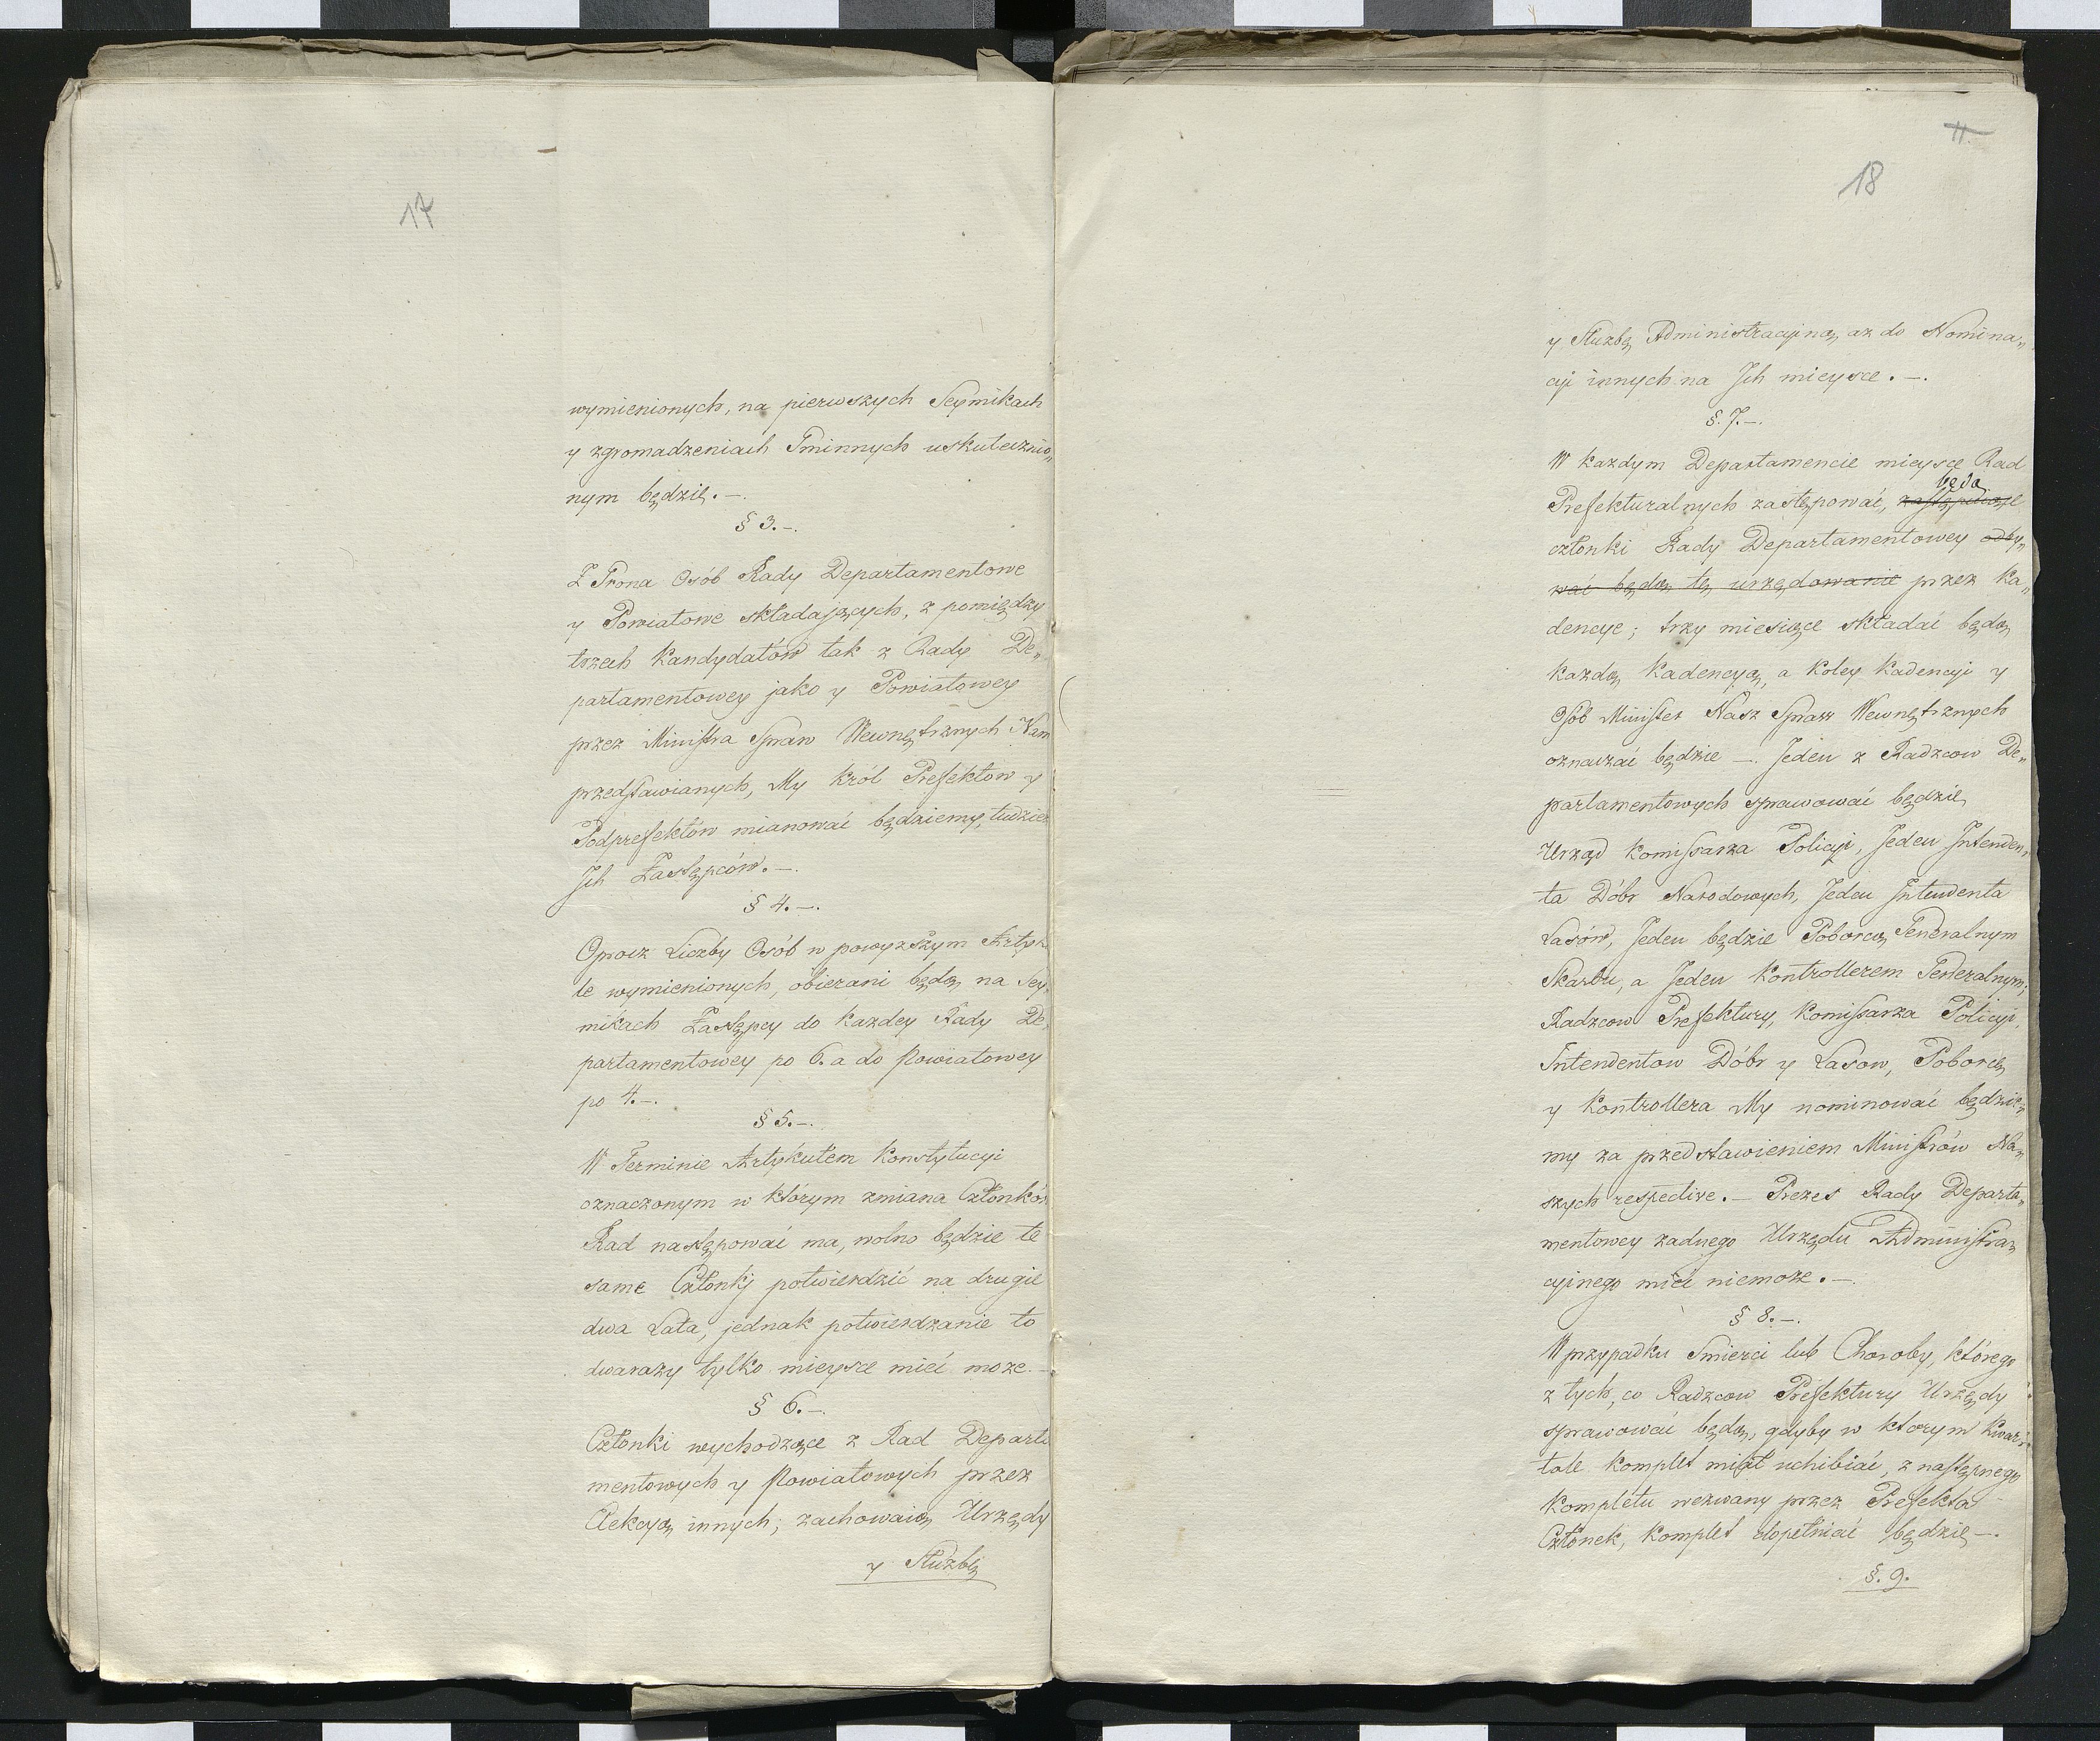 17
wymienionych, na pierwszych Seymikach
y zgromadzeniach Gminnych uskutecznio„
nym będzie. –.
§ 3. –.
Z Grona Osób Rady Departamentowe
y Powiatowe składających, z pomiędzy
trzech Kandydatów tak z Rady De„
partamentowey jako y Powiatowey
przez Ministra Spraw Wewnętrznych Nam
przedstawianych, My Król Prefektow y
Podprefektów mianować będziemy, tudzież
Jch Zastępców. –.
§ 4. –.
Oprocz Liczby Osób w powyzszym Artyku
le wymienionych, obierani będą na Sey„
mikach Zastępcy do kazdey Rady De„
partamentowey po 6. a do Powiatowey
po 4. –.
§ 5. –.
W Terminie Artykułem Konstytucyi
oznaczonym w którym zmiana Członków
Rad następować ma, wolno będzie te
same Członki potwierdzić na drugie
dwa Lata, jednak potwierdzanie to
dwarazy tylko mieysce mieć moze. –
§ 6. –.
Członki wychodzące z Rad Departa
mentowych y Powiatowych przez
Elekcyą innych; zachowaią Urzędy
y Służbę
11.
18
y Służbę Administracyiną, az do Nomina„
cyi innych na Jch mieysce. –.
§. 7. –.
W kazdym Departamencie mieysce Rad
będą
Prefekturalnych zastępować, zastępuiące
członki Rady Departamentowey odby„
wać będą tę urzędowanie przez Ka„
dencye; trzy miesiące składać będą
kazdą Kadencyą, a koley Kadencyi y
Osób Minister Nasz Spraw Wewnętrznych
oznaczać będzie –. Jeden z Radzcow De„
partamentowych sprawować będzie
Urząd Komissarza Policyi, Jeden Intenden„
ta Dóbr Narodowych, Jeden Intendenta
Lasów, Jeden będzie Poborcą Generalnym
Skarbu, a Jeden Kontrollerem Generalnym;
Radzcow Prefektury, Komissarza Policyi,
Intendentow Dóbr y Lasow, Poborcę
y Kontrollera My nominować będzie„
my za przedstawieniem Ministrów Na„
szych respective. – Prezes Rady Departa„
mentowey zadnego Urzędu Administra„
cyinego mieć niemoze. –.
§ 8. –.
W przypadku Smierci lub Choroby, którego
z tych, co Radzcow Prefektury Urzędy
sprawować będą, gdyby w ktorym Kwar„
tale komplet miał uchibiać, z następnego
kompletu wezwany przez Prefekta
Członek, komplet dopełniać będzie –.
§. 9.